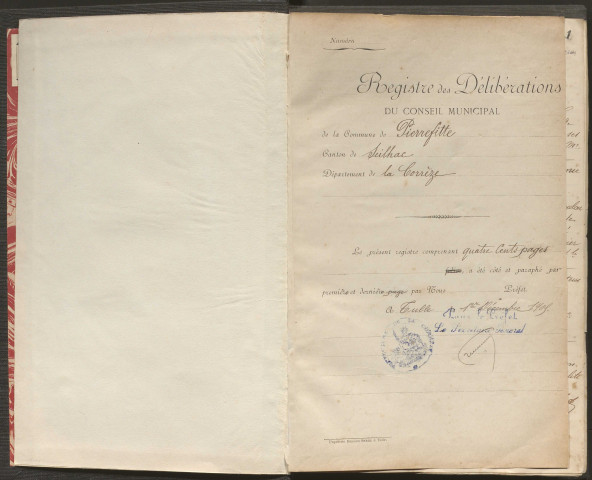 Numéro
Registre des Délibérations
DU CONSEIL MUNICIPAL
de la Commune de Pierrefitte
Canton de Seilhac
Département de la Corrèze
Le présent registre comprenant quatre Cents pages
a été coté et paraphé par
première et dernière par Nous Préfet
A Tulle 1er Décembre
Pour le Préfet
Le Secrétaire Général